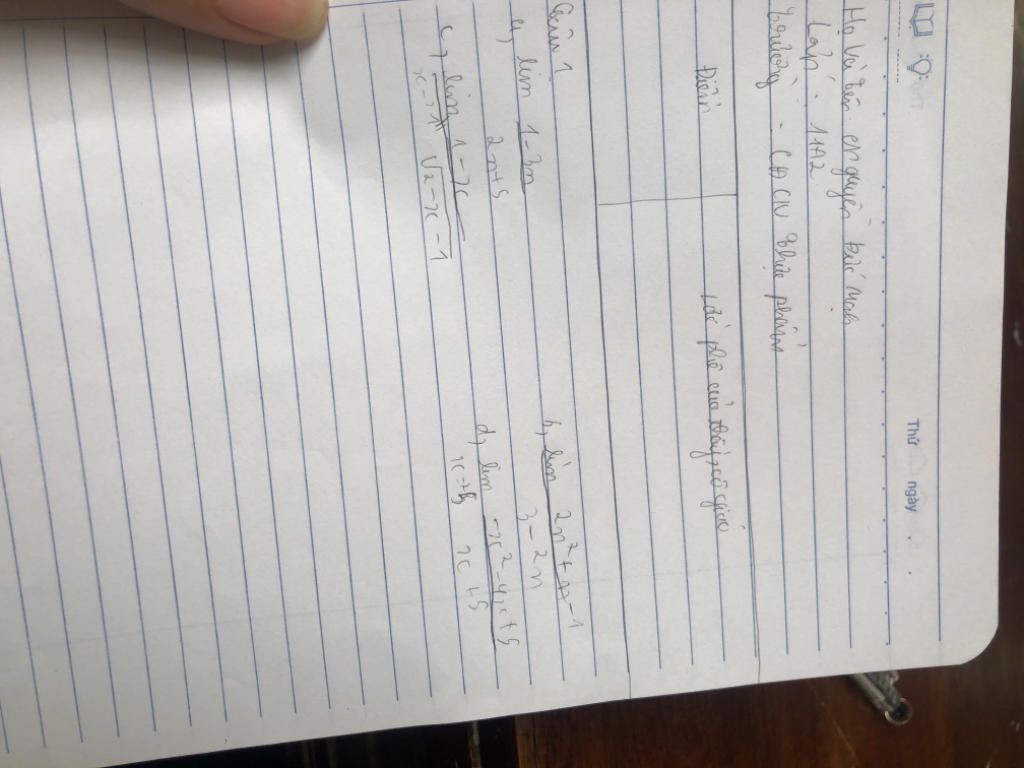 Thứ ngày
Họ và tên : nguyễn đức mạnh
Lớp : 11A2
Trường : CĐ CN
Điểm Lời phê của thầy, cô giáo
Câu 1
a, lim 1-3n / 2n+5 b, lim 2n²+n-1 / 3-2n
c, lim x→1 1-x / √2-x-1 d, lim x→-5 -x²-4x+5 / x+5